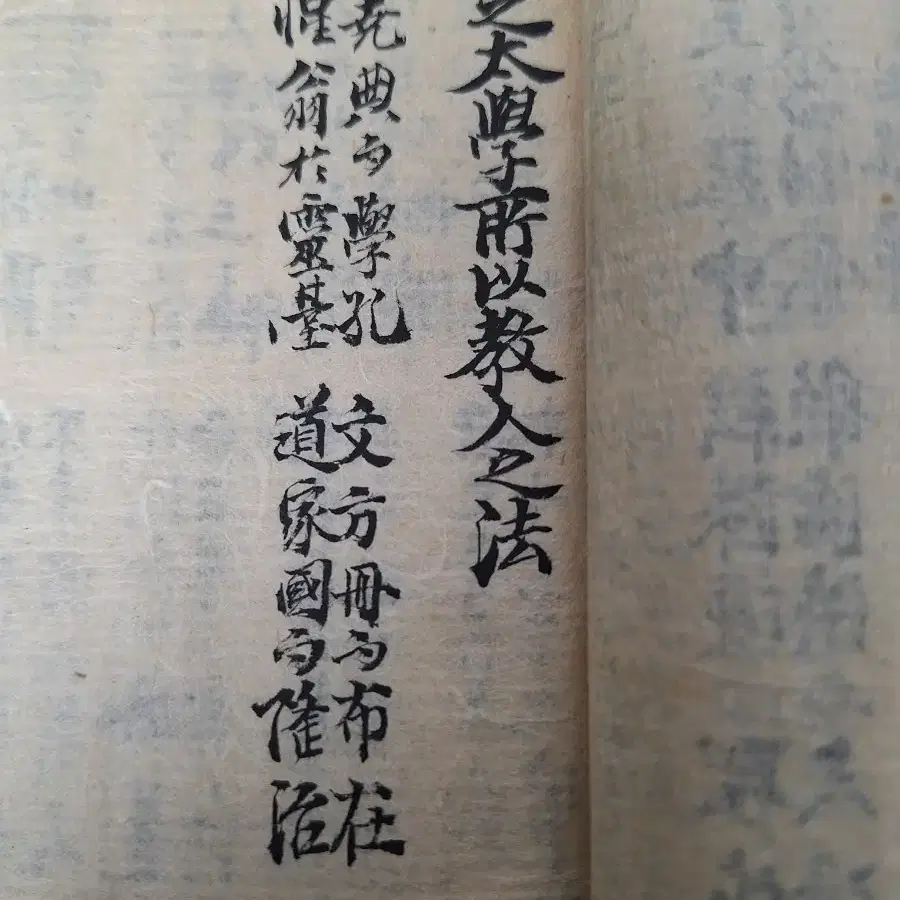 之太學所以教人之法
堯典而學孔
惟翁於靈臺
文方冊而布在
道家國而隆治